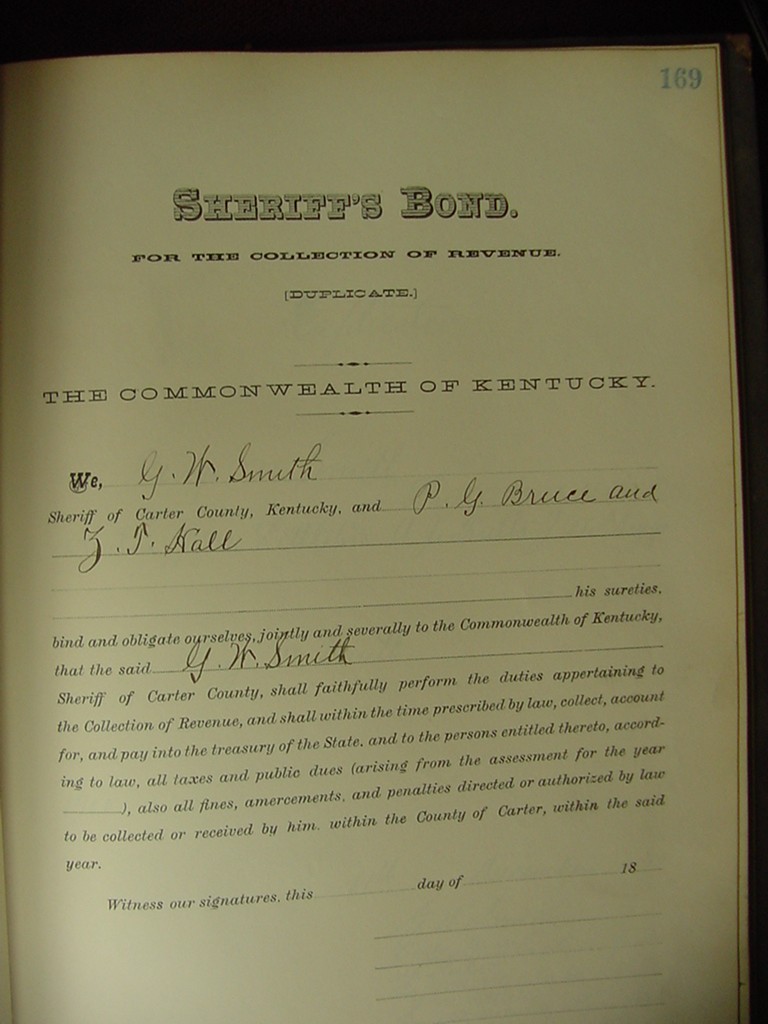 169
SHERIFF'S BOND.
FOR THE COLLECTION OF REVENUE.
[DUPLICATE.]
THE COMMONWEALTH OF KENTUCKY.
We, G. W. Smith
Sheriff of Carter County, Kentucky, and P. G. Bruce and
Z. T. Hall
his sureties,
bind and obligate ourselves, jointly and severally to the Commonwealth of Kentucky,
that the said G. W. Smith
Sheriff of Carter County, shall faithfully perform the duties appertaining to
the Collection of Revenue, and shall within the time prescribed by law, collect, account
for, and pay into the treasury of the State, and to the persons entitled thereto, accord-
ing to law, all taxes and public dues (arising from the assessment for the year
), also all fines, amercements, and penalties directed or authorized by law
to be collected or received by him, within the County of Carter, within the said
year.
Witness our signatures, this day of 18